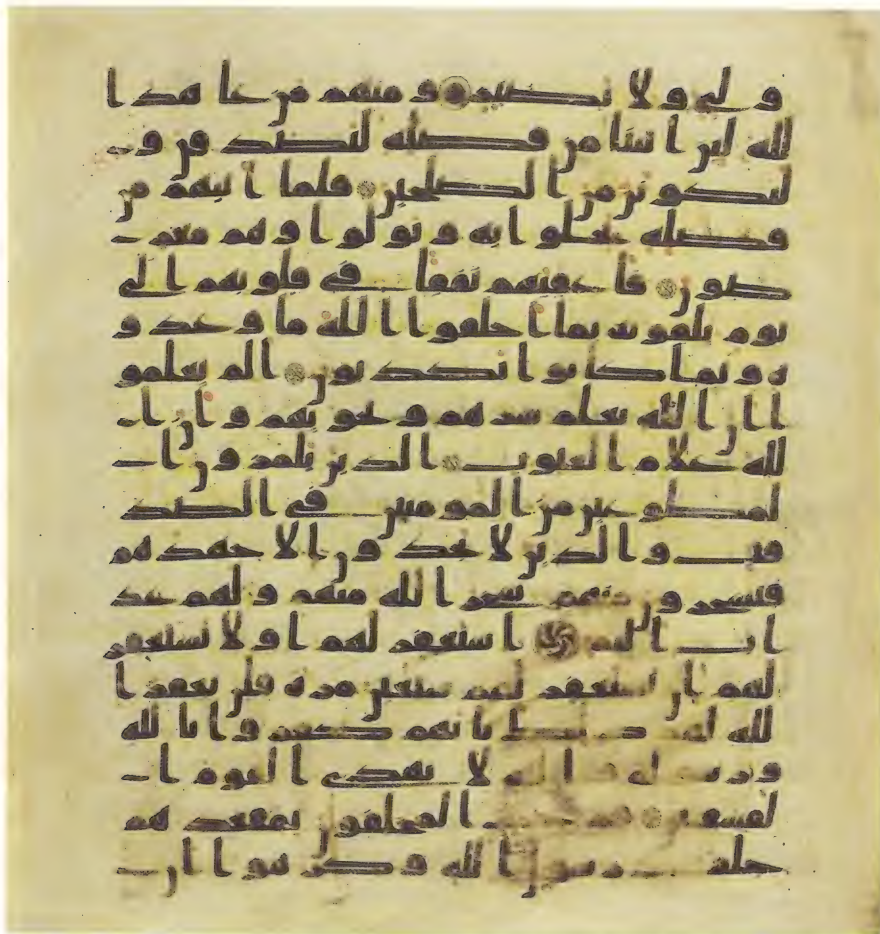 ولى ولا نصير ومنهم من عاهد ا
لله لئن اتنا من فضله لنصدقن و
لنكونن من الصلحين فلما اتيهم من
فضله بخلوا به وتولوا وهم معر
ضون فاعقبهم نفقا في قلوبهم الى
يوم يلقونه بما اخلفوا الله ما وعدو
ه وبما كانوا يكذبون الم يعلمو
ا ان الله يعلم سرهم ونجويهم وان ا
لله علام الغيوب الذين يلمزون ا
لمطوعين من المومنين في الصد
قت والذين لا يجدون الا جهدهم
فيسخرون منهم سخر الله منهم ولهم عذ
اب اليم استغفر لهم او لا تستغفر
لهم ان تستغفر لهم سبعين مرة فلن يغفر ا
لله لهم ذلك بانهم كفروا بالله
ورسوله والله لا يهدى القوم ا
لفسقين فرح المخلفون بمقعدهم
خلف رسول الله وكرهوا ان